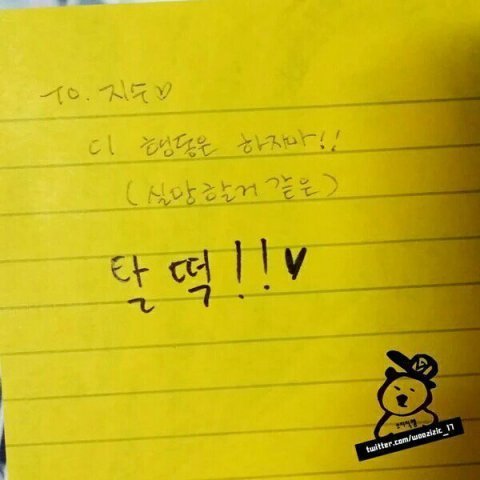 TO. 지수♡
이 행동은 하지마!!
(실망할거 같은)
탈떡!!♥
twitter.com/woozizic_17